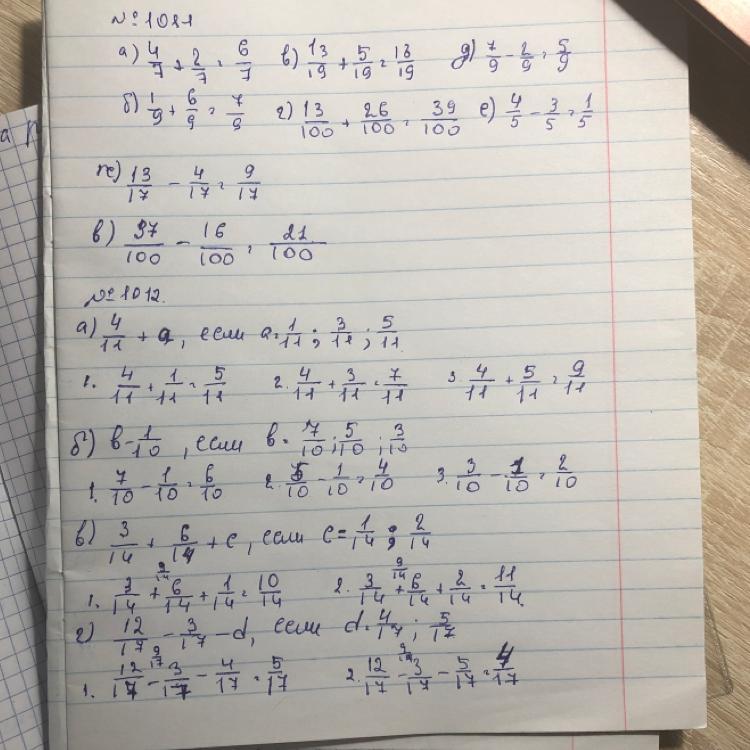 № 1011
а) 4/7 + 2/7 = 6/7 в) 13/19 + 5/19 = 18/19 д) 7/9 - 2/9 = 5/9
б) 1/9 + 6/9 = 7/9 г) 13/100 + 26/100 = 39/100 е) 4/5 - 3/5 = 1/5
ж) 13/17 - 4/17 = 9/17
в) 37/100 - 16/100 = 21/100
№ 1012.
а) 4/11 + a, если a = 1/11; 3/11; 5/11
1. 4/11 + 1/11 = 5/11 2. 4/11 + 3/11 = 7/11 3. 4/11 + 5/11 = 9/11
б) b - 1/10, если b = 7/10; 5/10; 3/10
1. 7/10 - 1/10 = 6/10 2. 5/10 - 1/10 = 4/10 3. 3/10 - 1/10 = 2/10
в) 3/14 + 6/14 + c, если c = 1/14; 2/14
9/14 9/14
1. 3/14 + 6/14 + 1/14 = 10/14 2. 3/14 + 6/14 + 2/14 = 11/14
г) 12/17 - 3/17 - d, если d = 4/17; 5/17
9/17 9/17
1. 12/17 - 3/17 - 4/17 = 5/17 2. 12/17 - 3/17 - 5/17 = 4/17